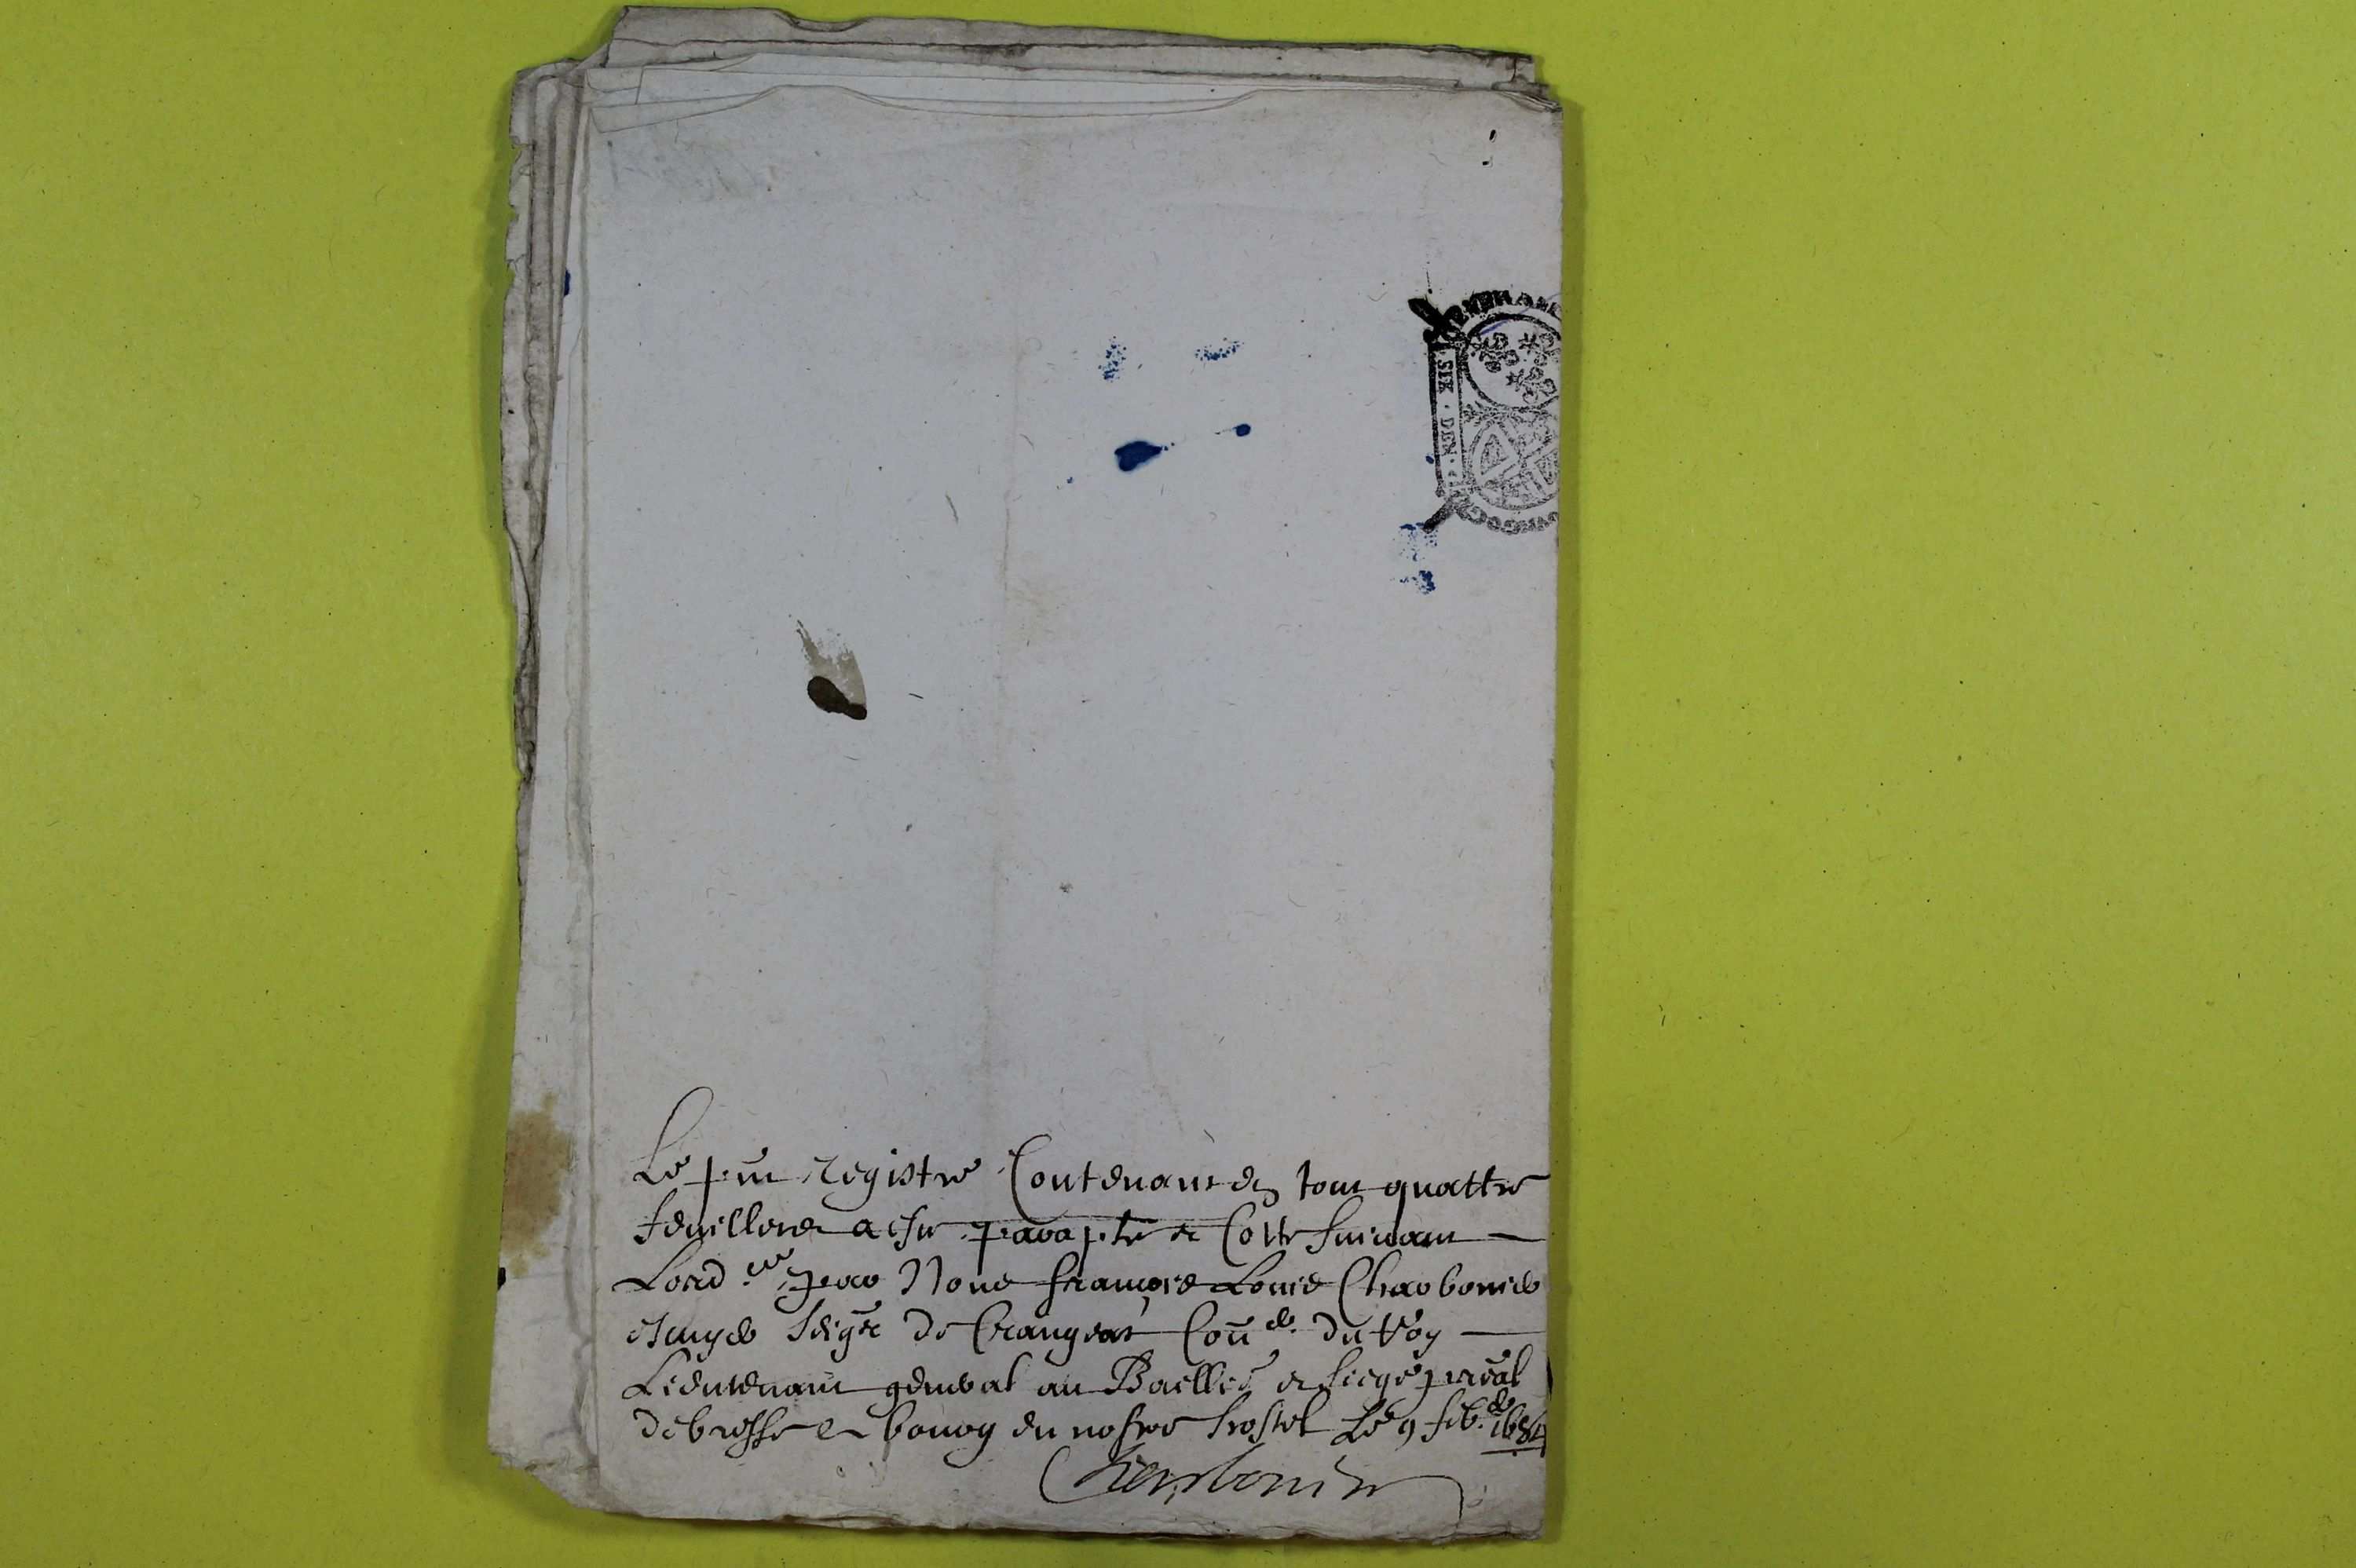 SIX · DEN
Le pnt registre Contenant en tout quattre
feuilletz a esté paraphé et Cotté suivant
Lord.ce par Nous françois Louis Charbonier
escuyer seigr de Crangeat Conr du Roy
Lieutenant general au Baille et siege pnal
de bresse a bourg en nostre hostel Le 9 feb. 1684
Charbonier